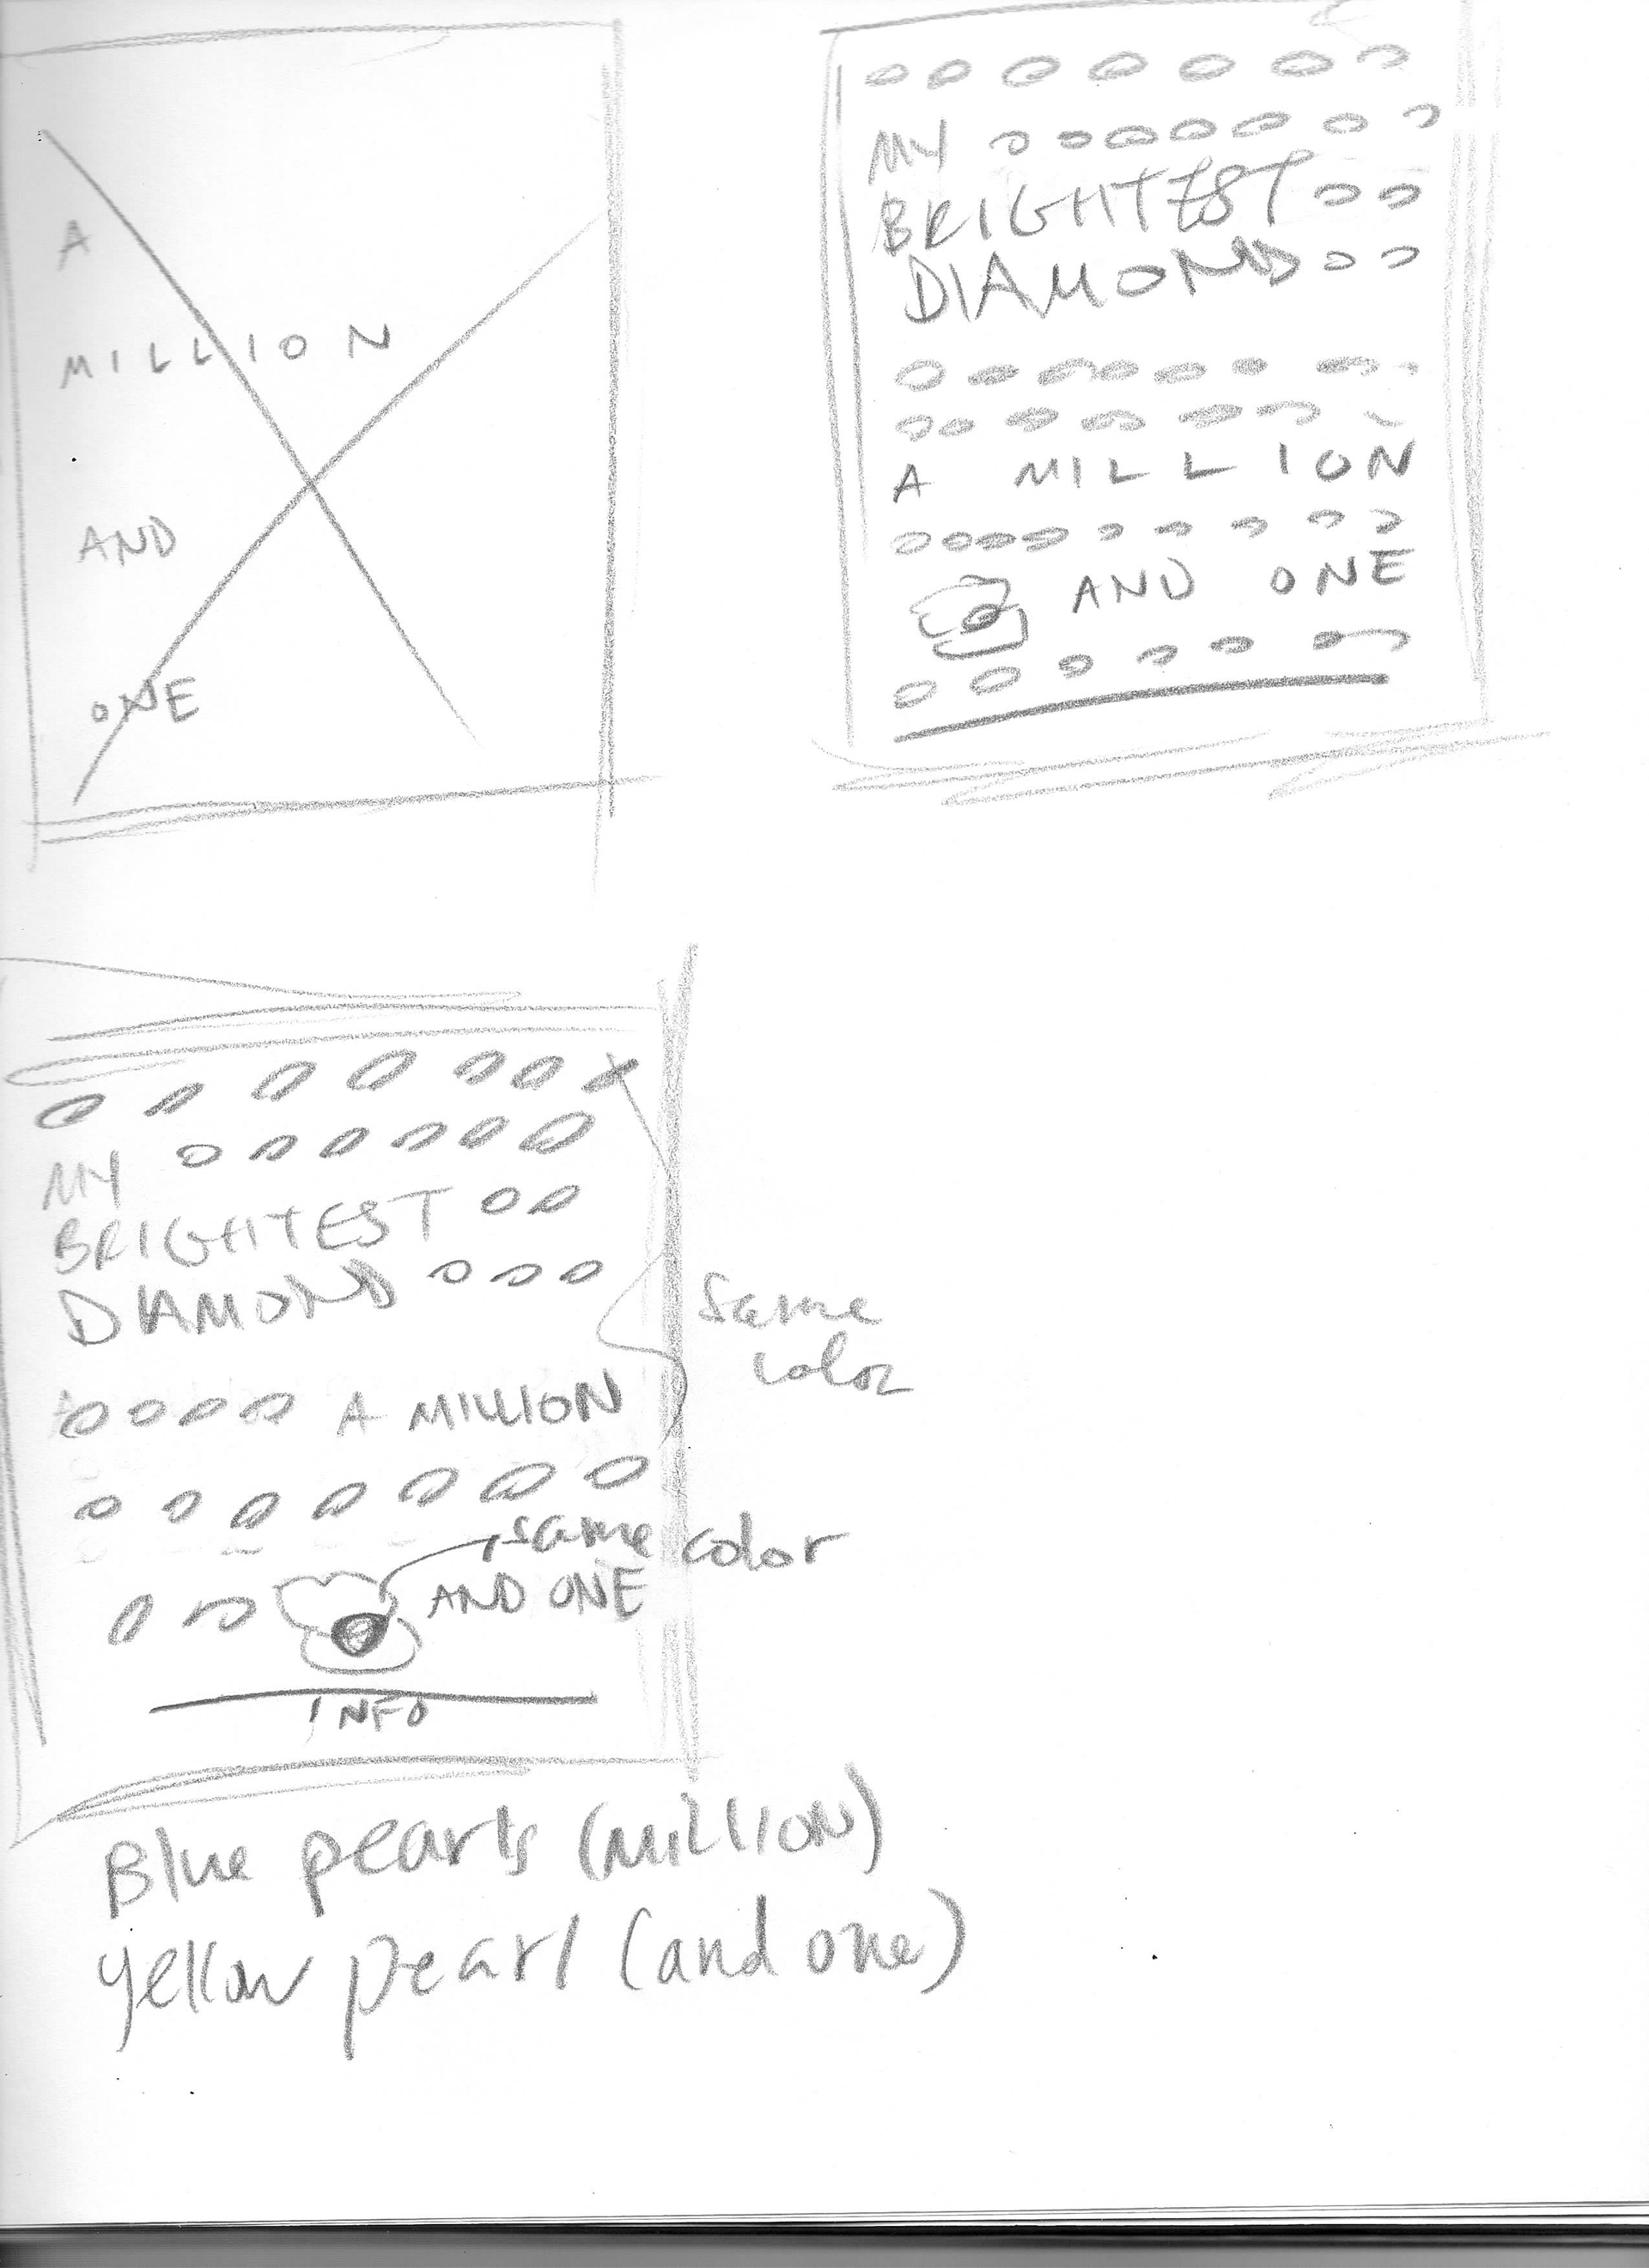 A
MILLION
AND
ONE
MY
BRIGHTEST
DIAMOND
A MILLION
AND ONE
MY
BRIGHTEST
DIAMOND
same
color
A MILLION
same color
AND ONE
INFO
Blue pearls (MILLION)
yellow pearl (and one)